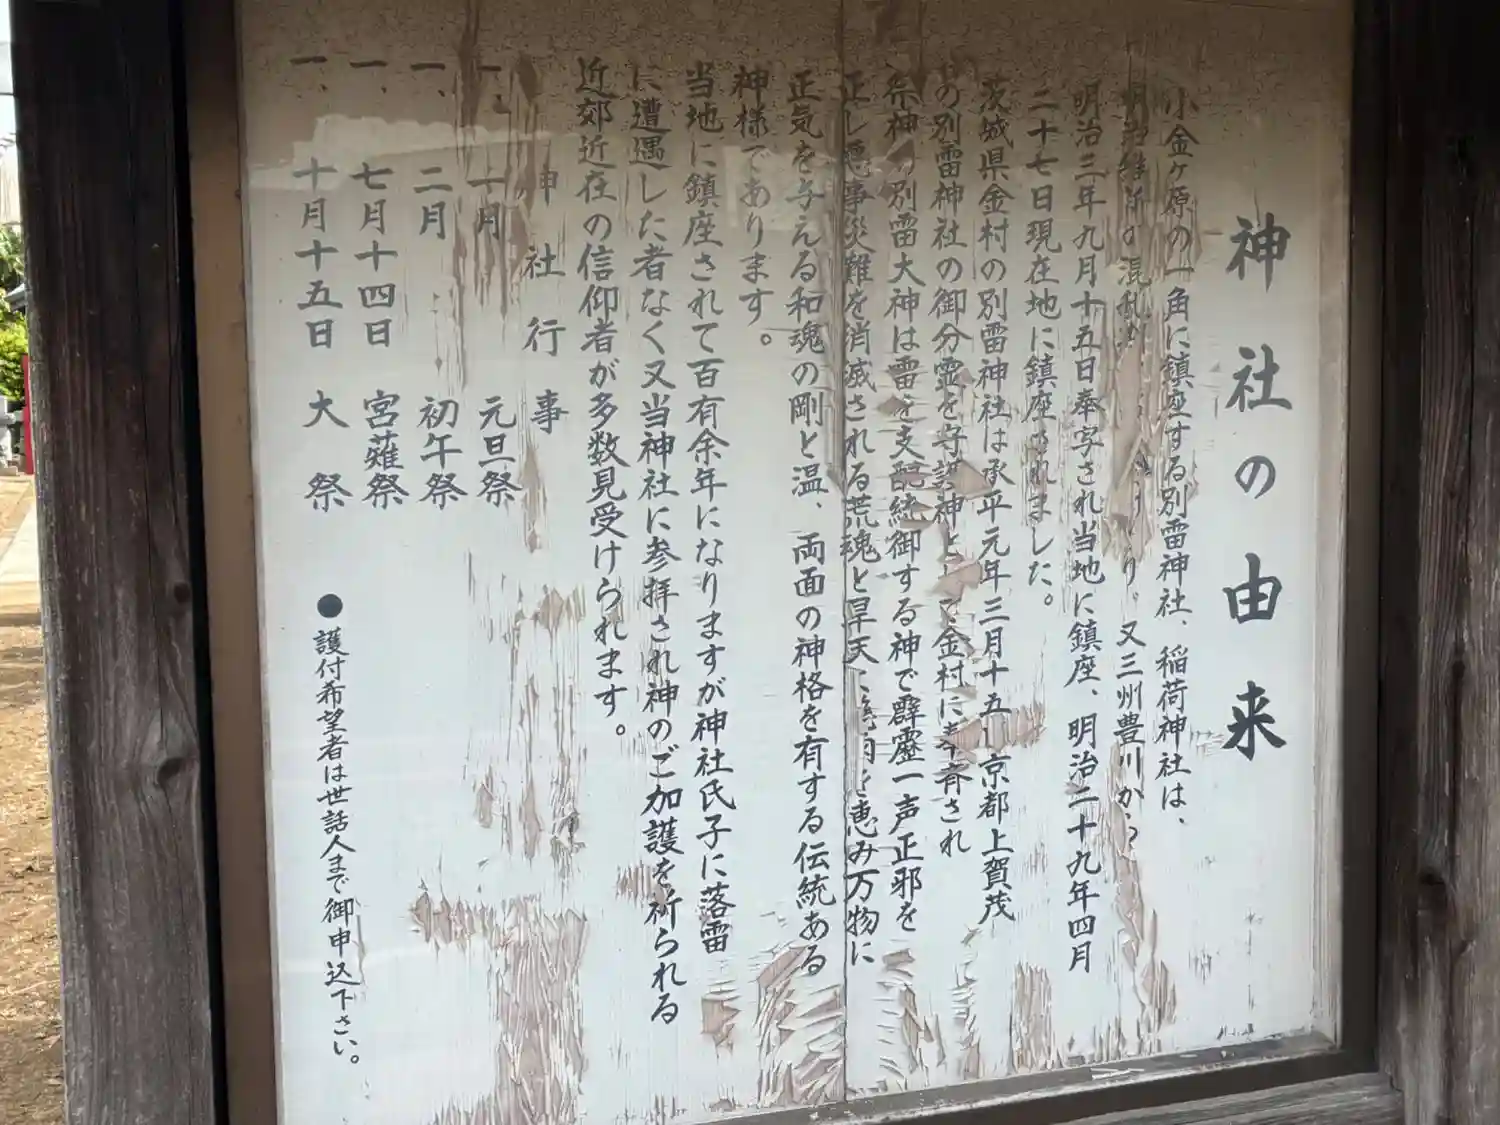 神社の由来
小金ヶ原の一角に鎮座する別雷神社、稲荷神社は、
明治維新の混乱 り。又三州豊川から
明治三年九月十五日奉写され当地に鎮座、明治二十九年四月
二十七日現在地に鎮座されました。
茨城県金村の別雷神社は承平元年三月十五 京都上賀茂
の別雷神社の御分霊を守護神として金村に奉斉され
祭神の別雷大神は雷を支配統御する神で霹靂一声正邪を
正し悪事災難を消滅される荒魂と旱天に 雨を恵み万物に
正気を与える和魂の剛と温、両面の神格を有する伝統ある
神様であります。
当地に鎮座されて百有余年になりますが神社氏子に落雷
に遭遇した者なく又当神社に参拝され神のご加護を祈られる
近郊近在の信仰者が多数見受けられます。
神社行事
一、 月 元旦祭
一、二月 初午祭
一、七月十四日 宮薙祭
一、十月十五日 大祭
●護付希望者は世話人まで御申込下さい。